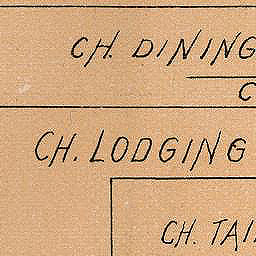 CH. DINING
C
CH. LODGING
CH. TAI